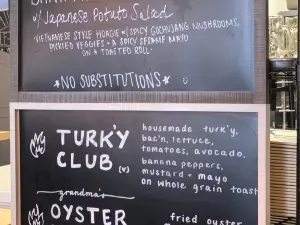 w/ Japanese Potato Salad
VIETNAMESE STYLE HOAGIE w/ SPICY GOCHUJANG MUSHROOMS,
PICKLED VEGGIES + A SPICY SESAME MAYO
ON A TOASTED ROLL
*NO SUBSTITUTIONS*
TURK'Y
CLUB (v)
housemade turk'y,
bac'n, lettuce,
tomatoes, avocado,
banana peppers,
mustard + mayo
on whole grain toast
grandma's
OYSTER
fried oyster